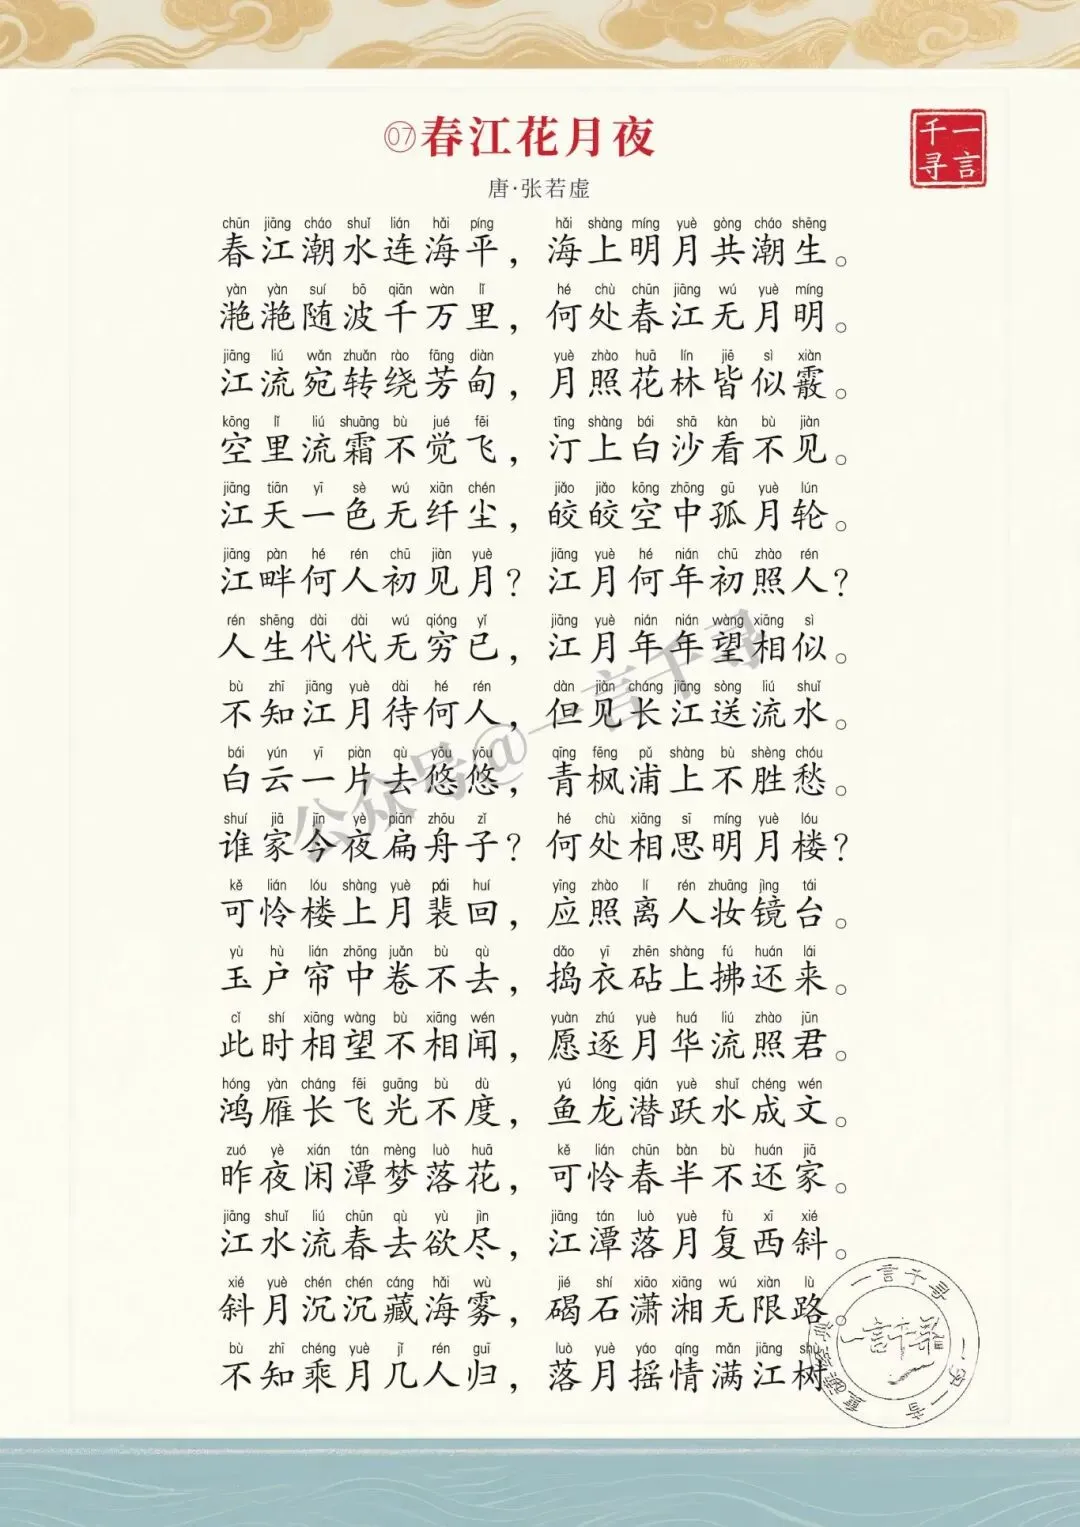 07春江花月夜
千一
寻言
唐·张若虚
chūn jiāng cháo shuǐ lián hǎi píng hǎi shàng míng yuè gòng cháo shēng
春江潮水连海平，海上明月共潮生。
yàn yàn suí bō qiān wàn lǐ hé chù chūn jiāng wú yuè míng
滟滟随波千万里，何处春江无月明。
jiāng liú wǎn zhuǎn rào fāng diàn yuè zhào huā lín jiē sì xiàn
江流宛转绕芳甸，月照花林皆似霰。
kōng lǐ liú shuāng bù jué fēi tīng shàng bái shā kàn bù jiàn
空里流霜不觉飞，汀上白沙看不见。
jiāng tiān yī sè wú xiān chén jiǎo jiǎo kōng zhōng gū yuè lún
江天一色无纤尘，皎皎空中孤月轮。
jiāng pàn hé rén chū jiàn yuè jiāng yuè hé nián chū zhào rén
江畔何人初见月？江月何年初照人？
rén shēng dài dài wú qióng yǐ jiāng yuè nián nián wàng xiāng sì
人生代代无穷已，江月年年望相似。
bù zhī jiāng yuè dài hé rén dàn jiàn cháng jiāng sòng liú shuǐ
不知江月待何人，但见长江送流水。
bái yún yī piàn qù yōu yōu qīng fēng pǔ shàng bù shèng chóu
白云一片去悠悠，青枫浦上不胜愁。
shuí jiā jīn yè piān zhōu zǐ hé chù xiāng sī míng yuè lóu
谁家今夜扁舟子？何处相思明月楼？
kě lián lóu shàng yuè pái huí yīng zhào lí rén zhuāng jìng tái
可怜楼上月裴回，应照离人妆镜台。
yù hù lián zhōng juǎn bù qù dǎo yī zhēn shàng fú huán lái
玉户帘中卷不去，捣衣砧上拂还来。
cǐ shí xiāng wàng bù xiāng wén yuàn zhú yuè huá liú zhào jūn
此时相望不相闻，愿逐月华流照君。
hóng yàn cháng fēi guāng bù dù yú lóng qián yuè shuǐ chéng wén
鸿雁长飞光不度，鱼龙潜跃水成文。
zuó yè xián tán mèng luò huā kě lián chūn bàn bù huán jiā
昨夜闲潭梦落花，可怜春半不还家。
jiāng shuǐ liú chūn qù yù jìn jiāng tán luò yuè fù xī xié
江水流春去欲尽，江潭落月复西斜。
xié yuè chén chén cáng hǎi wù jié shí xiāo xiāng wú xiàn lù
斜月沉沉藏海雾，碣石潇湘无限路。
bù zhī chéng yuè jǐ rén guī luò yuè yáo qíng mǎn jiāng shù
不知乘月几人归，落月摇情满江树
公众号@一言千寻
一言千寻
一字一音
一言千寻